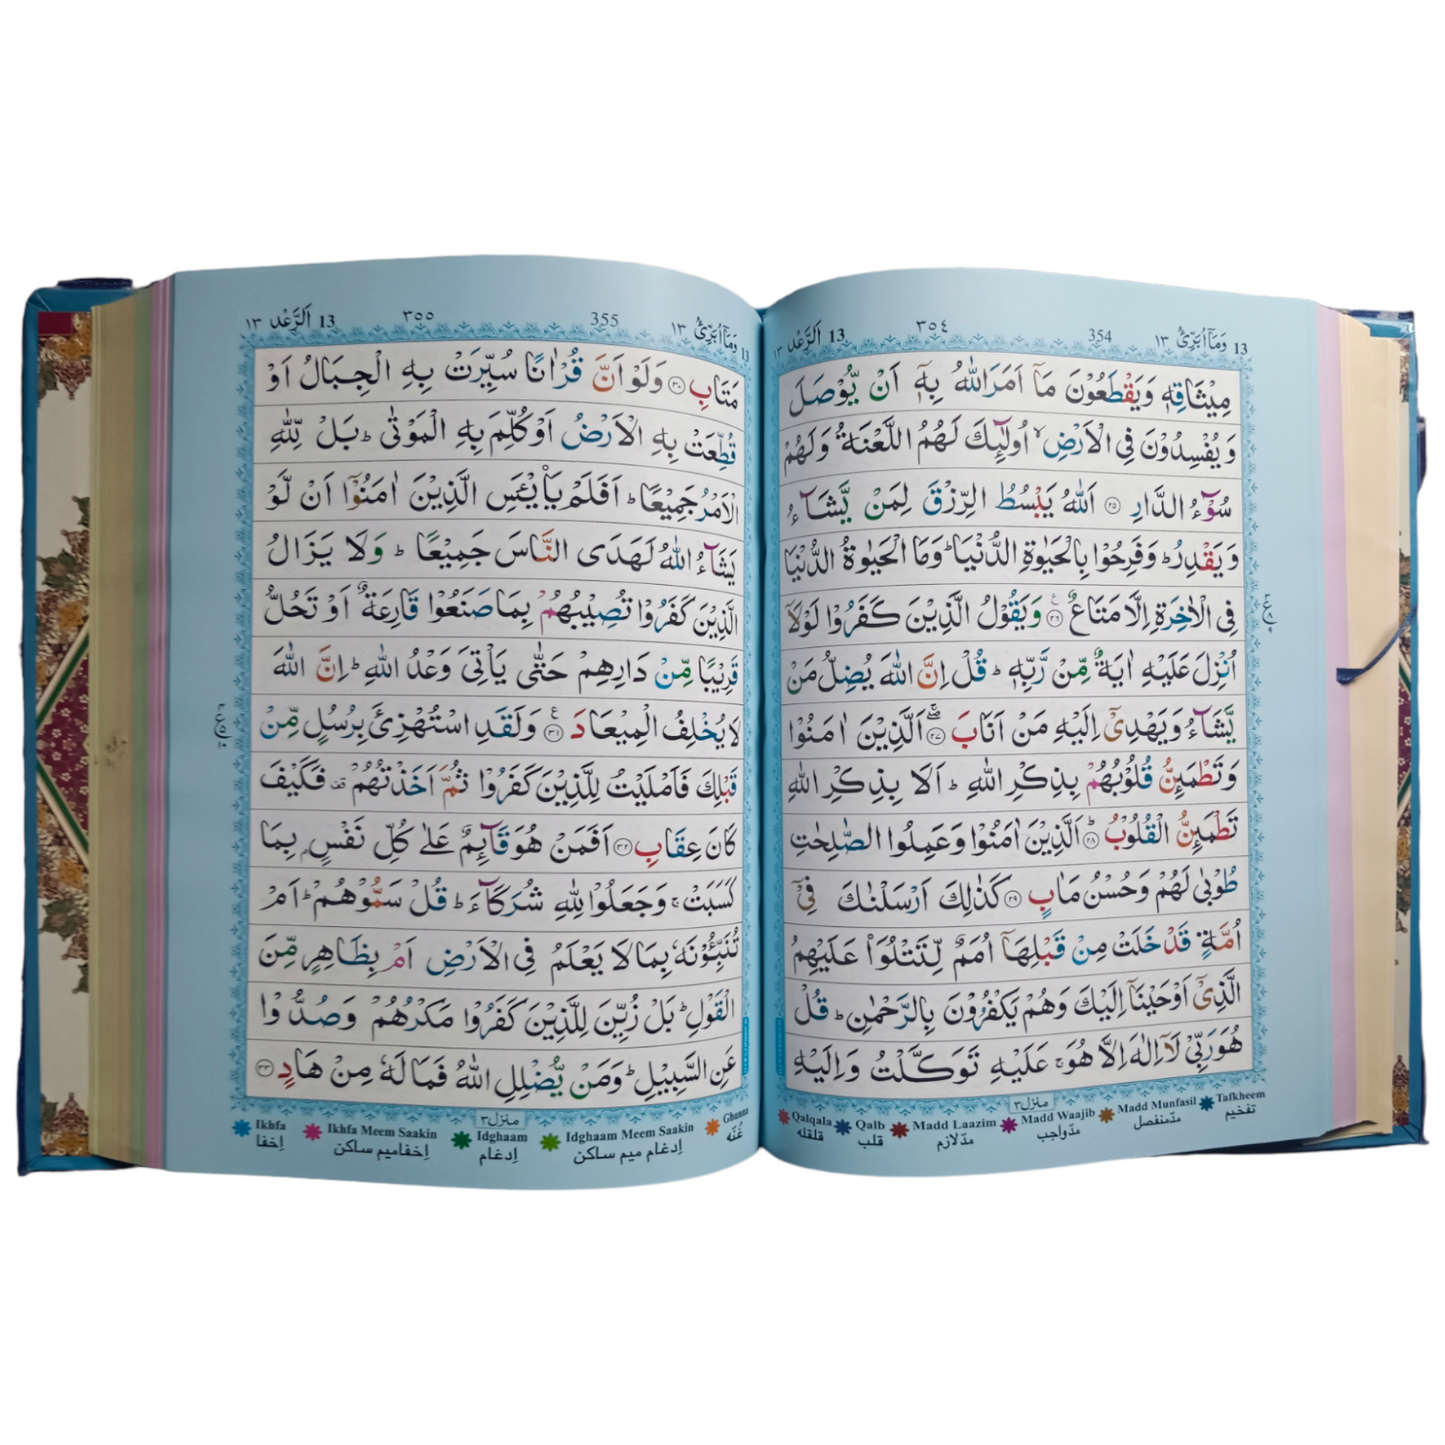 13 وَمَاۤ اُبَرِّئُ ١٣ 354 ٣٥٤ 13 اَلرَّعْد ١٣
مِيْثَاقِهٖ وَيَقْطَعُوْنَ مَاۤ اَمَرَ اللّٰهُ بِهٖۤ اَنْ يُّوْصَلَ
وَيُفْسِدُوْنَ فِى الْاَرْضِ ۙ اُولٰٓئِكَ لَهُمُ اللَّعْنَةُ وَلَهُمْ
سُوْٓءُ الدَّارِ ۝٢٥ اَللّٰهُ يَبْسُطُ الرِّزْقَ لِمَنْ يَّشَآءُ
وَيَقْدِرُ ؕ وَفَرِحُوْا بِالْحَيٰوةِ الدُّنْيَا ؕ وَمَا الْحَيٰوةُ الدُّنْيَا
فِى الْاٰخِرَةِ اِلَّا مَتَاعٌ ۝٢٦ وَيَقُوْلُ الَّذِيْنَ كَفَرُوْا لَوْلَاۤ
اُنْزِلَ عَلَيْهِ اٰيَةٌ مِّنْ رَّبِّهٖ ؕ قُلْ اِنَّ اللّٰهَ يُضِلُّ مَنْ
يَّشَآءُ وَيَهْدِىْۤ اِلَيْهِ مَنْ اَنَابَ ۝٢٧ اَلَّذِيْنَ اٰمَنُوْا
وَتَطْمَئِنُّ قُلُوْبُهُمْ بِذِكْرِ اللّٰهِ ؕ اَلَا بِذِكْرِ اللّٰهِ
تَطْمَئِنُّ الْقُلُوْبُ ۝٢٨ اَلَّذِيْنَ اٰمَنُوْا وَعَمِلُوا الصّٰلِحٰتِ
طُوْبٰى لَهُمْ وَحُسْنُ مَاٰبٍ ۝٢٩ كَذٰلِكَ اَرْسَلْنٰكَ فِىْۤ
اُمَّةٍ قَدْ خَلَتْ مِنْ قَبْلِهَاۤ اُمَمٌ لِّتَتْلُوَا۟ عَلَيْهِمُ
الَّذِىْۤ اَوْحَيْنَاۤ اِلَيْكَ وَهُمْ يَكْفُرُوْنَ بِالرَّحْمٰنِ ؕ قُلْ
هُوَ رَبِّىْ لَاۤ اِلٰهَ اِلَّا هُوَ ۚ عَلَيْهِ تَوَكَّلْتُ وَاِلَيْهِ
منزل ٣
Qalqala Qalb Madd Laazim Madd Waajib Madd Munfasil Tafkheem
قلقله قلب مدّ لازم مدّ واجب مدّ منفصل تفخيم
13 وَمَاۤ اُبَرِّئُ ١٣ 355 ٣٥٥ 13 اَلرَّعْد ١٣
مَتَابِ ۝٣٠ وَلَوْ اَنَّ قُرْاٰنًا سُيِّرَتْ بِهِ الْجِبَالُ اَوْ
قُطِّعَتْ بِهِ الْاَرْضُ اَوْ كُلِّمَ بِهِ الْمَوْتٰى ؕ بَلْ لِّلّٰهِ
الْاَمْرُ جَمِيْعًا ؕ اَفَلَمْ يَا۟يْـَٔسِ الَّذِيْنَ اٰمَنُوْۤا اَنْ لَّوْ
يَشَآءُ اللّٰهُ لَهَدَى النَّاسَ جَمِيْعًا ؕ وَلَا يَزَالُ
الَّذِيْنَ كَفَرُوْا تُصِيْبُهُمْ بِمَا صَنَعُوْا قَارِعَةٌ اَوْ تَحُلُّ
قَرِيْبًا مِّنْ دَارِهِمْ حَتّٰى يَاْتِىَ وَعْدُ اللّٰهِ ؕ اِنَّ اللّٰهَ
لَا يُخْلِفُ الْمِيْعَادَ ۝٣١ وَلَقَدِ اسْتُهْزِئَ بِرُسُلٍ مِّنْ
قَبْلِكَ فَاَمْلَيْتُ لِلَّذِيْنَ كَفَرُوْا ثُمَّ اَخَذْتُهُمْ قف فَكَيْفَ
كَانَ عِقَابِ ۝٣٢ اَفَمَنْ هُوَ قَآئِمٌ عَلٰى كُلِّ نَفْسٍ ۭ بِمَا
كَسَبَتْ ۚ وَجَعَلُوْا لِلّٰهِ شُرَكَآءَ ؕ قُلْ سَمُّوْهُمْ ؕ اَمْ
تُنَبِّـُٔوْنَهٗ بِمَا لَا يَعْلَمُ فِى الْاَرْضِ اَمْ بِظَاهِرٍ مِّنَ
الْقَوْلِ ؕ بَلْ زُيِّنَ لِلَّذِيْنَ كَفَرُوْا مَكْرُهُمْ وَصُدُّوْا
عَنِ السَّبِيْلِ ؕ وَمَنْ يُّضْلِلِ اللّٰهُ فَمَا لَهٗ مِنْ هَادٍ ۝٣٣
منزل ٣
Ikhfa Ikhfa Meem Saakin Idghaam Idghaam Meem Saakin Ghunna
اِخفا اِخفاميم ساكن اِدغام اِدغام ميم ساكن غُنّه